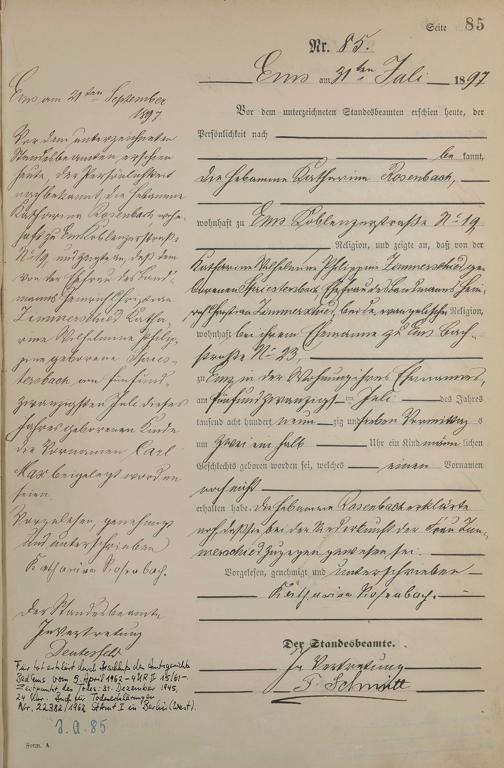 Seite 85
Nr. 85.
Ems am 31ten Juli 1897
Vor dem unterzeichneten Standesbeamten erschien heute, der
Persönlichkeit nach
be kannt,
die Hebamme Katharina Rosenbach,
wohnhaft zu Ems Koblenzerstraße No 19
Religion, und zeigte an, daß von der
Katharine Wilhelmine Philippine Zimmerschied ge-
borenen Thiestersbach, Ehefrau des Landmanns Hein-
rich Christian Zimmerschied, beide evangelischer Religion,
wohnhaft bei ihrem Ehemanne zu Ems Bach-
straße No 23,
zu Ems in der Wohnung ihres Ehemannes,
am fünfundzwanzigst en Juli des Jahres
tausend acht hundert neun zig und sieben Vormittag s
um zwei ein halb Uhr ein Kind männ lichen
Geschlechts geboren worden sei, welches einen Vornamen
noch nicht
erhalten habe. die Hebamme Rosenbach erklärte
noch daß sie bei der Niederkunft der Frau Zim-
merschied zugegen gewesen sei.
Vorgelesen, genehmigt und unterschrieben
Katharina Rosenbach.
Der Standesbeamte.
In Vertretung
F. Schmitt
Ems am 21ten September
1897
Vor dem unterzeichneten
Standesbeamten erschien
heute, der Persönlichkeit
nach bekannt, die Hebamme
Katharina Rosenbach, wohn-
haft zu Ems Koblenzerstraße
No 19 und zeigte an, daß dem
von der Ehefrau des Land-
manns Heinrich Christian
Zimmerschied Katha-
rine Wilhelmine Philip-
pine geborene
am fünfund-
zwanzigsten Juli dieses
Jahres geborenen Kinde
die Vornamen Carl
Max beigelegt worden
seien.
Vorgelesen, genehmigt
und unterschrieben
Katharina Rosenbach.
Der Standesbeamte
In Vertretung
Für tot erklärt durch Beschluß des Amtsgerichts
Bad Ems vom 5. April 1962 - 4 UR II 15/61 -
Zeitpunkt des Todes: 31. Dezember 1945,
24 Uhr. Buch für Todeserklärungen
Nr. 22382/1962 StAmt I in Berlin (West).
J. A. 85
Form. A.